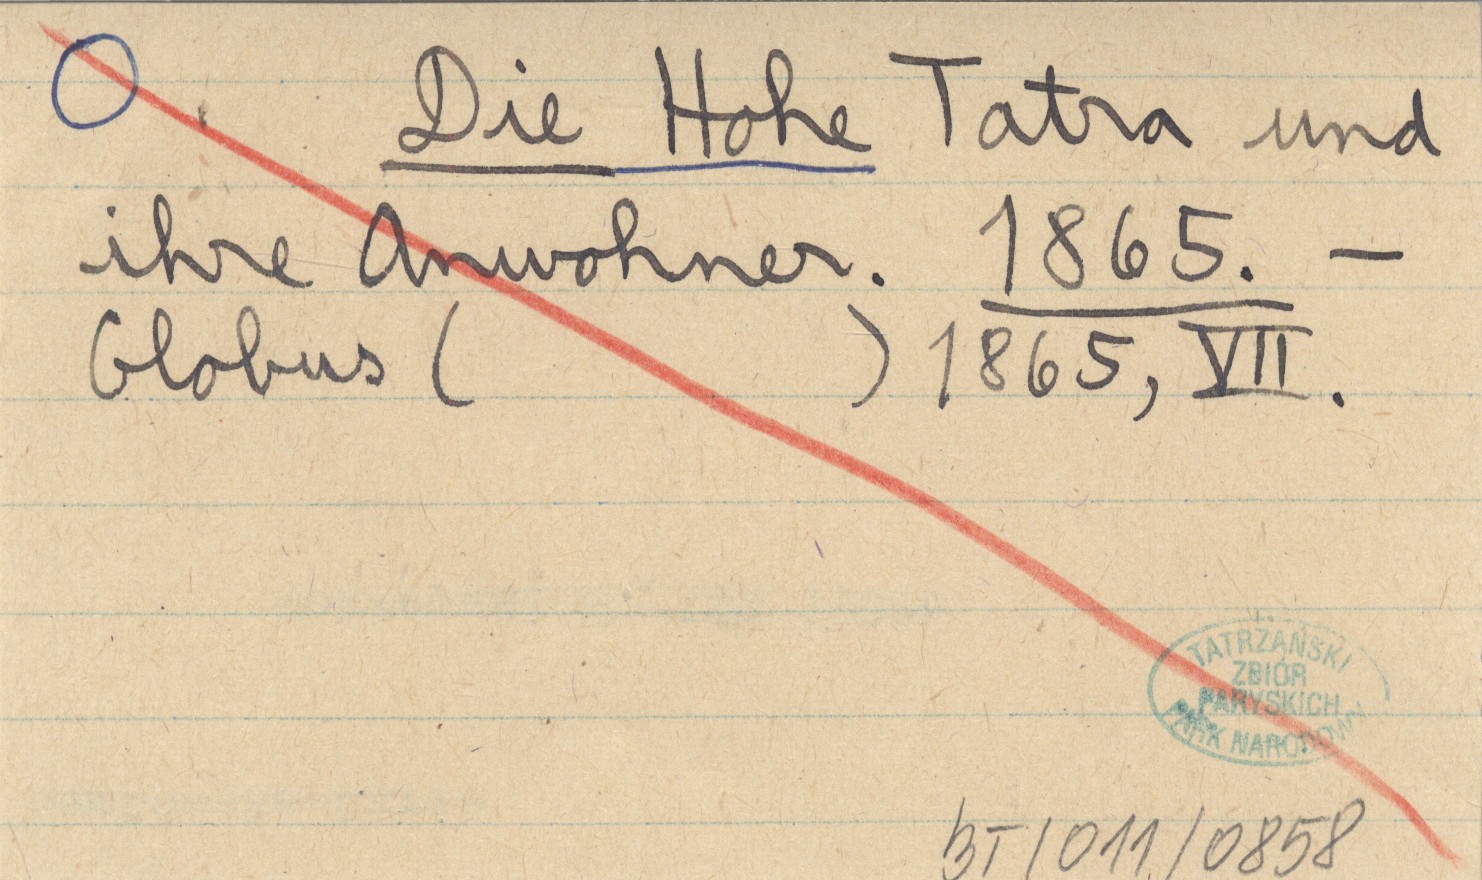 Die Hohe Tatra und
ihre Anwohner. 1865. —
Globus ( ) 1865, VII.
TATRZAŃSKI
ZBIÓR
PARYSKICH
PARK NARODOWY
BT/011/0858